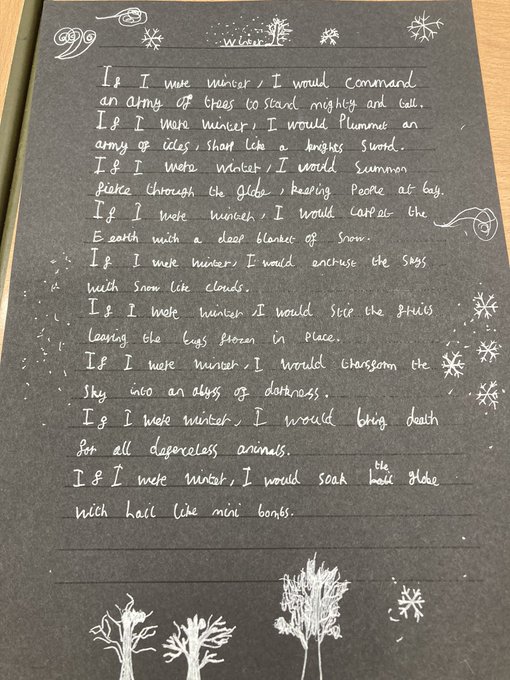 Winter
If I were winter, I would command
an army of trees to stand mighty and tall.
If I were winter, I would Plummet an
army of icles, sharp like a knights sword.
If I were winter, I would summon
fierce through the globe, keeping people at bay.
If I were winter, I would carpet the
E earth with a deep blanket of snow.
If I were winter, I would encrust the skys
with snow like clouds.
If I were winter, I would stip the
leaving the frozen in place.
If I were winter, I would transform the
sky into an abyss of darkness.
If I were winter, I would bring death
for all defenceless animals.
If I were winter, I would soak the globe
with hail like mini bombs.